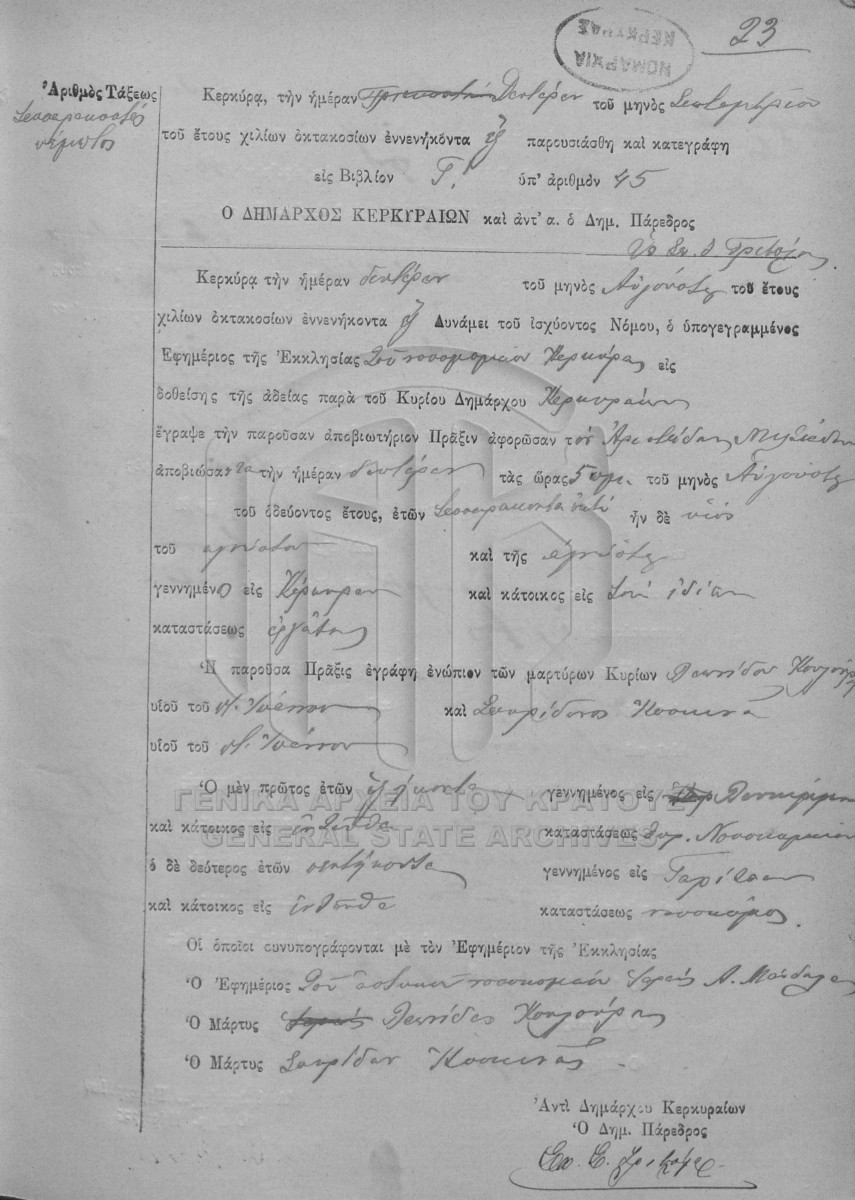 ΝΟΜΑΡΧΙΑ ΚΕΡΚΥΡΑΣ
23
Ἀριθμὸς Τάξεως
Τεσσαρακοστὸς
πέμπτος
Κερκύρᾳ, τὴν ἡμέραν Τριακοστὴν Δευτέραν τοῦ μηνὸς Σεπτεμβρίου
τοῦ ἔτους χιλίων ὀκτακοσίων ἐννενήκοντα ἓξ παρουσιάσθη καὶ κατεγράφη
εἰς Βιβλίον Γ! ὑπ' ἀριθμὸν 45
Ο ΔΗΜΑΡΧΟΣ ΚΕΡΚΥΡΑΙΩΝ καὶ ἀντ' α. ὁ Δημ. Πάρεδρος
Κερκύρᾳ τὴν ἡμέραν δευτέραν τοῦ μηνὸς Αὐγούστου τοῦ ἔτους
χιλίων ὀκτακοσίων ἐννενήκοντα ἓξ Δυνάμει τοῦ ἰσχύοντος Νόμου, ὁ ὑπογεγραμμένος
Ἐφημέριος τῆς Ἐκκλησίας Τοῦ νοσοκομείου Κερκύρας εἰς
δοθείσης τῆς ἀδείας παρὰ τοῦ Κυρίου Δημάρχου Κερκυραίων
ἔγραψε τὴν παροῦσαν ἀποβιωτήριον Πρᾶξιν ἀφορῶσαν τὸν Ἀριστείδην
ἀποβιώσαντα τὴν ἡμέραν δευτέραν τὰς ὥρας 5 π.μ. τοῦ μηνὸς Αὐγούστου
τοῦ ὁδεύοντος ἔτους, ἐτῶν Τεσσαράκοντα ὀκτὼ ἦν δὲ υἱὸς
τοῦ ἀγνώστου καὶ τῆς ἀγνώστου
γεννημένο εἰς Κέρκυραν καὶ κάτοικος εἰς Τὴν ἰδίαν
καταστάσεως ἐργάτης
Ἡ παροῦσα Πρᾶξις ἐγράφη ἐνώπιον τῶν μαρτύρων Κυρίων Λεωνίδου Κουλούρη
υἱοῦ τοῦ π. Ἰωάννου καὶ Σπυρίδωνος Κοσκινᾶ
υἱοῦ τοῦ π. Ἰωάννου
Ὁ μὲν πρῶτος ἐτῶν ἑξήκοντα γεννημένος εἰς
καὶ κάτοικος εἰς ἐνταῦθα καταστάσεως Νοσοκομείου
ὁ δὲ δεύτερος ἐτῶν πεντήκοντα γεννημένος εἰς Γαρίτσαν
καὶ κάτοικος εἰς ἐνταῦθα καταστάσεως νοσοκόμος
Οἱ ὁποῖοι συνυπογράφονται μὲ τὸν Ἐφημέριον τῆς Ἐκκλησίας
Ὁ Ἐφημέριος Τοῦ ἀστικοῦ νοσοκομείου Ἱερεὺς Α.
Ὁ Μάρτυς Ἱερεὺς Λεωνίδας Κουλούρης
Ὁ Μάρτυς Σπυρίδων Κοσκινᾶς
Ἀντὶ Δημάρχου Κερκυραίων
Ὁ Δημ. Πάρεδρος
ΓΕΝΙΚΑ ΑΡΧΕΙΑ ΤΟΥ ΚΡΑΤΟΥΣ
GENERAL STATE ARCHIVES